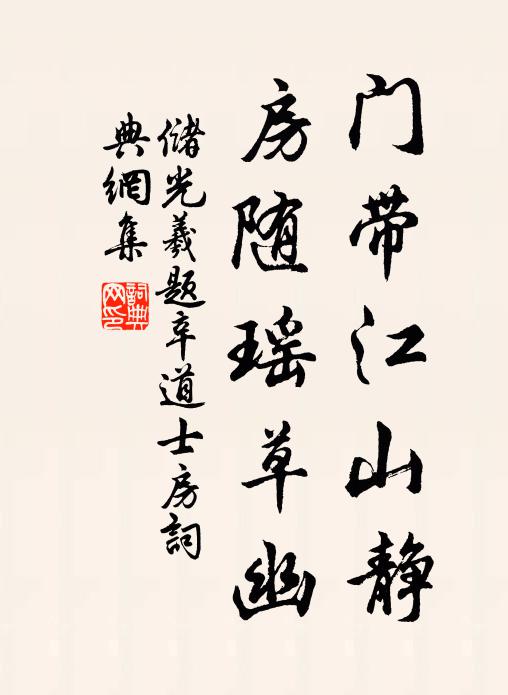 门带江山静
房随瑶草幽
储光羲题辛道士房詞
典網集
詞典
网印